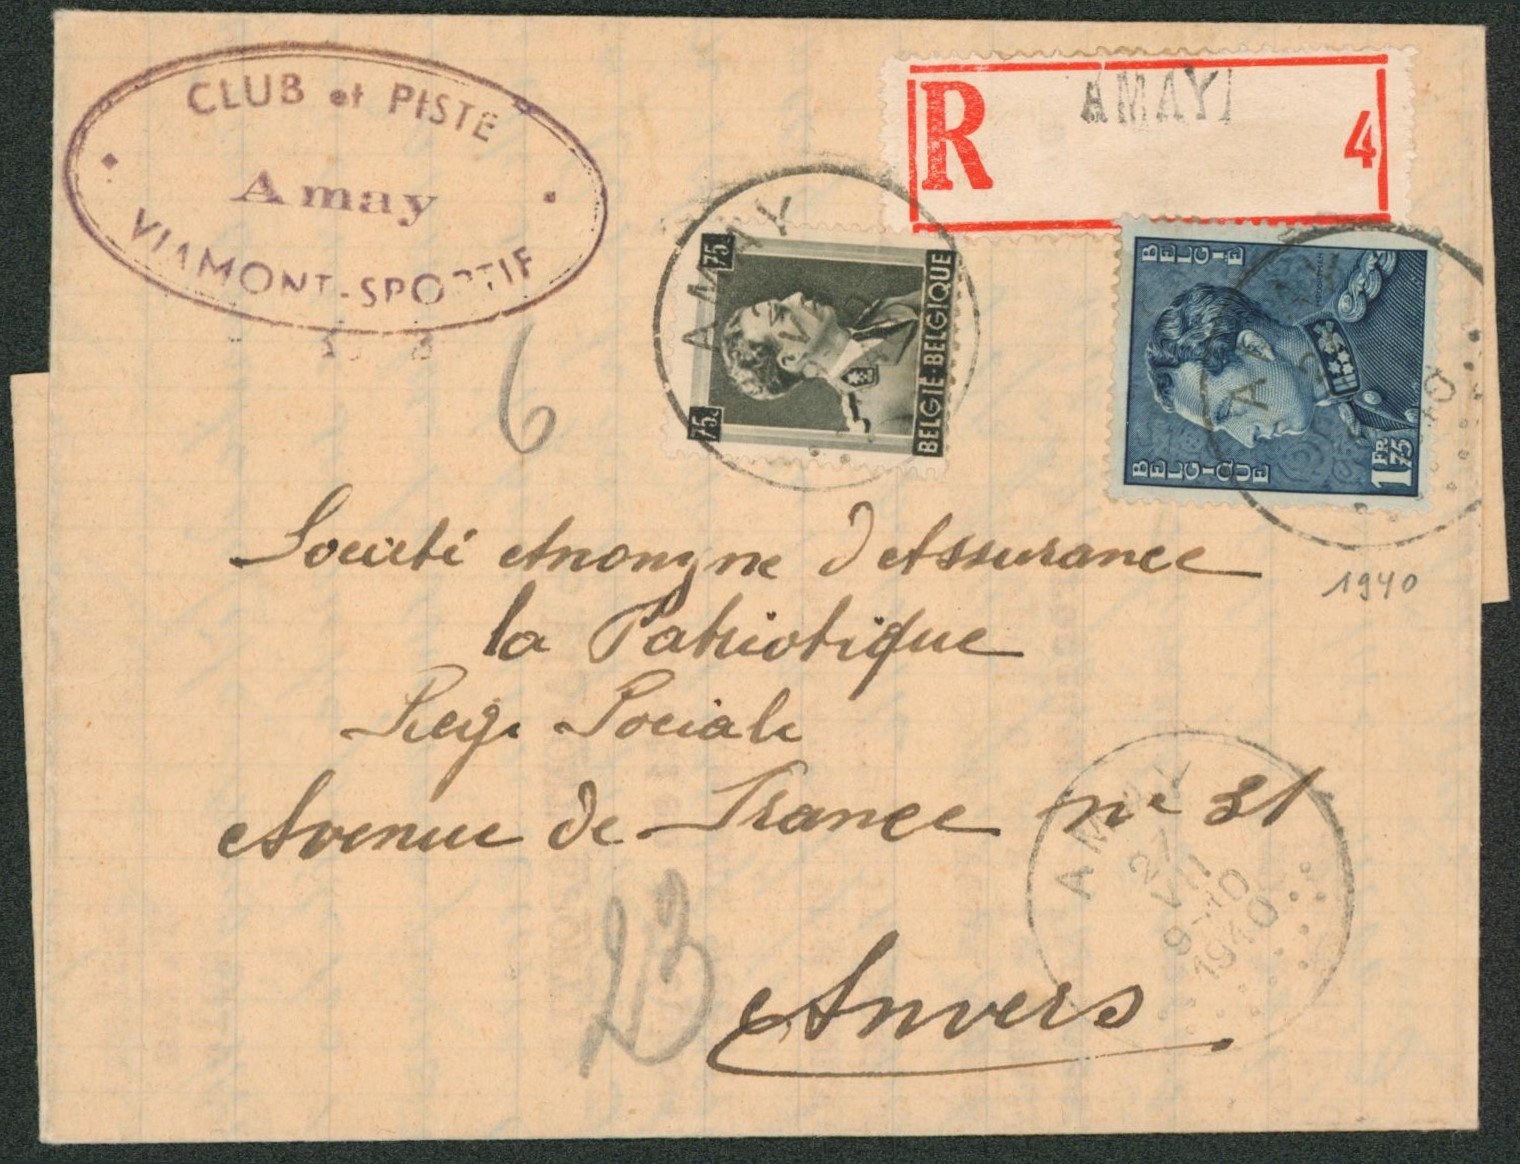 CLUB et PISTE
Amay
VIAMONT-SPORTIF
R
AMAY
4
AMAY
75
75
BELGIE-BELGIQUE
BELGIË
BELGIQUE
1 FR. 75
6
Société Anonyme d'Assurance
la Patriotique
Siège Sociale
1940
Avenue de France nº 31
Anvers
23
AMAY
27
VII
9-10
1940